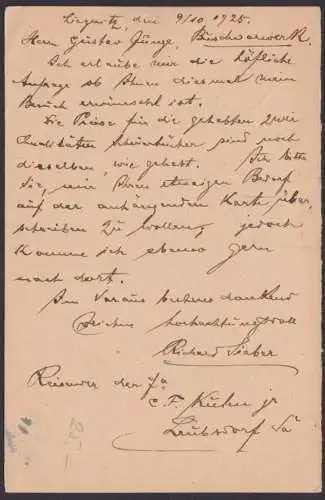 Liegnitz, den 9/10 1925.
Herrn Gustav Junge, Bischwerwerk.
Ich erlaube mir die höfliche
Anfrage ob Ihnen diesmal mein
Besuch erwünscht ist.
Die Preise für die gehabten zwei
Qualitäten Scheuertücher sind noch
dieselben, wie gehabt. Ich bitte
Sie, mir Ihren etwaigen Bedarf
auf der anhängenden Karte über-
schreiben zu wollen, jedoch
komme ich ebenso gern
nach dort.
Im Voraus bestens dankend
zeichne hochachtungsvoll
Richard Sieber
Reisender der Fa
C. F. Kuhn jr
Leubsdorf Sa